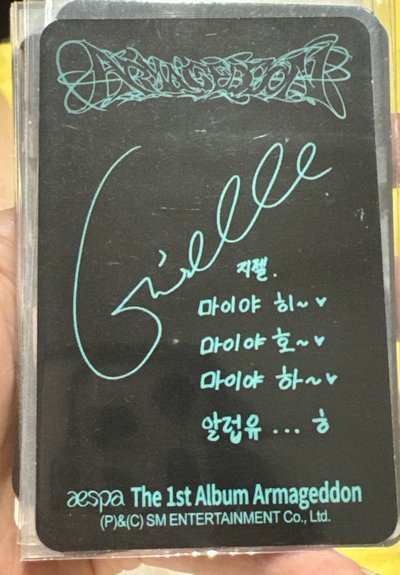 ARMAGEDDON
Giselle
지젤.
마이야 히~♥
마이야 호~♥
마이야 하~♥
알럽유 ... ㅎ
aespa The 1st Album Armageddon
(P)&(C) SM ENTERTAINMENT Co., Ltd.